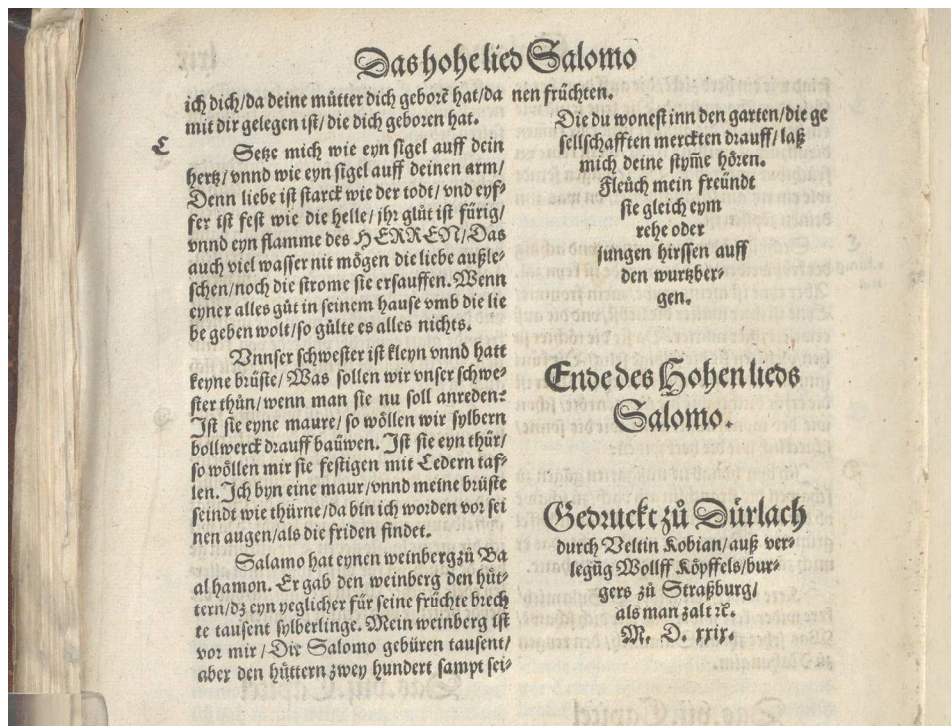 Das hohe lied Salomo
ich dich/da deine můtter dich geborẽ hat/da
mit dir gelegen ist/die dich geboren hat.
C
Setze mich wie eyn sigel auff dein
hertz/vnnd wie eyn sigel auff deinen arm/
Denn liebe ist starck wie der todt/vnd eyf-
fer ist fest wie die helle/jhr glůt ist fürig/
vnnd eyn flamme des HERREN/Das
auch viel wasser nit mögen die liebe außle-
schen/noch die strome sie ersauffen. Wenn
eyner alles gůt in seinem hause vmb die lie
be geben wolt/so gülte es alles nichts.
Vnnser schwester ist kleyn vnnd hatt
keyne brüste/Was sollen wir vnser schwe-
ster thůn/wenn man sie nu soll anreden?
Ist sie eyne maure/so wöllen wir sylbern
bollwerck drauff baüwen. Ist sie eyn thür/
so wöllen mir sie festigen mit Cedern taf-
len. Ich byn eine maur/vnnd meine brüste
seindt wie thürne/da bin ich worden vor sei
nen augen/als die friden findet.
Salamo hat eynen weinberg zů Ba
al hamon. Er gab den weinberg den hüt-
tern/dz eyn yeglicher für seine früchte brech
te tausent sylberlinge. Mein weinberg ist
vor mir/Dir Salomo gebüren tausent/
aber den hüttern zwey hundert sampt sei-
nen früchten.
Die du wonest inn den garten/die ge
sellschafften merckten drauff/laß
mich deine stym̃e hören.
Fleüch mein freündt
sie gleich eym
rehe oder
jungen hirssen auff
den wurtzber-
gen.
Ende des Hohen lieds
Salomo.
Gedruckt zů Dürlach
durch Veltin Kobian/auß ver-
legũg Wolff Köpffels/bur-
gers zů Straßburg/
als man zalt ꝛc.
M. D. xxix.